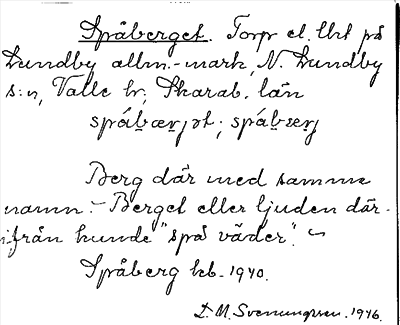 Spåberget. Torp el. lht på
Lundby allm.-mark, N. Lundby
s:n, Valle hr, Skarab. län
spåbærjət; spåbærj
Berg där med samma
namn. - Berget eller ljuden där-
ifrån kunde "spå väder".
Spåberg kb. 1940.
D. M. Svenungsson. 1946.